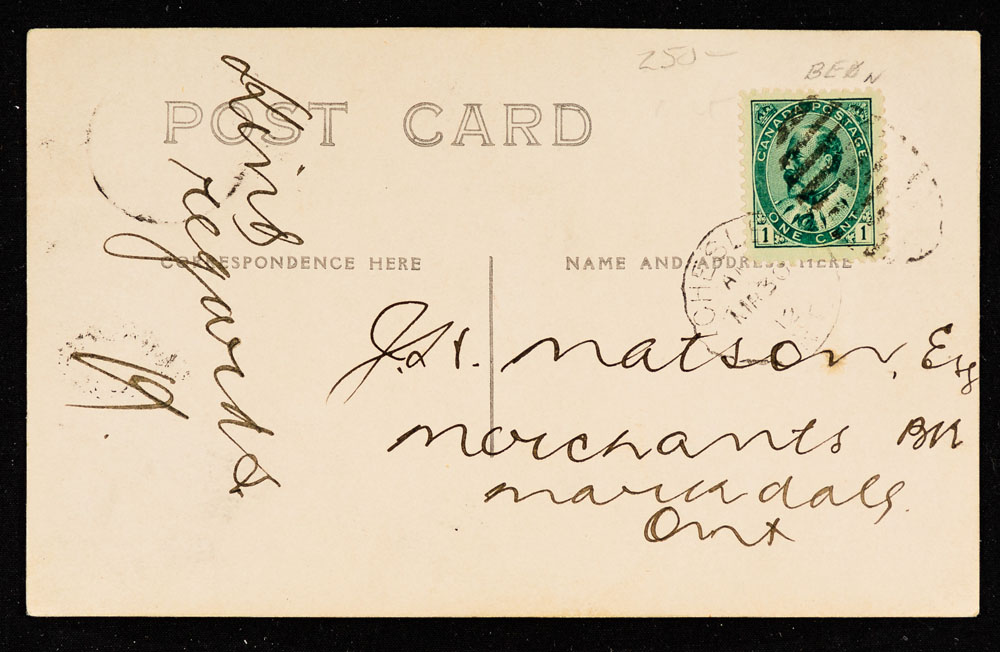 250-
POST CARD
CANADA POSTAGE
ONE CENT
1 1
CHESL
AM
MR 30
CORRESPONDENCE HERE
NAME AND ADDRESS HERE
Kind
regards
J.H. Watson, Esq
Merchants BK
Markdale
Ont